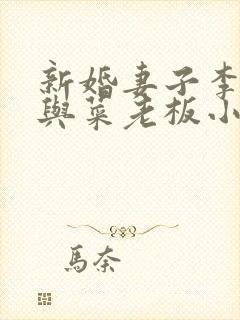 新婚妻子李
與菜老板小
馬奈